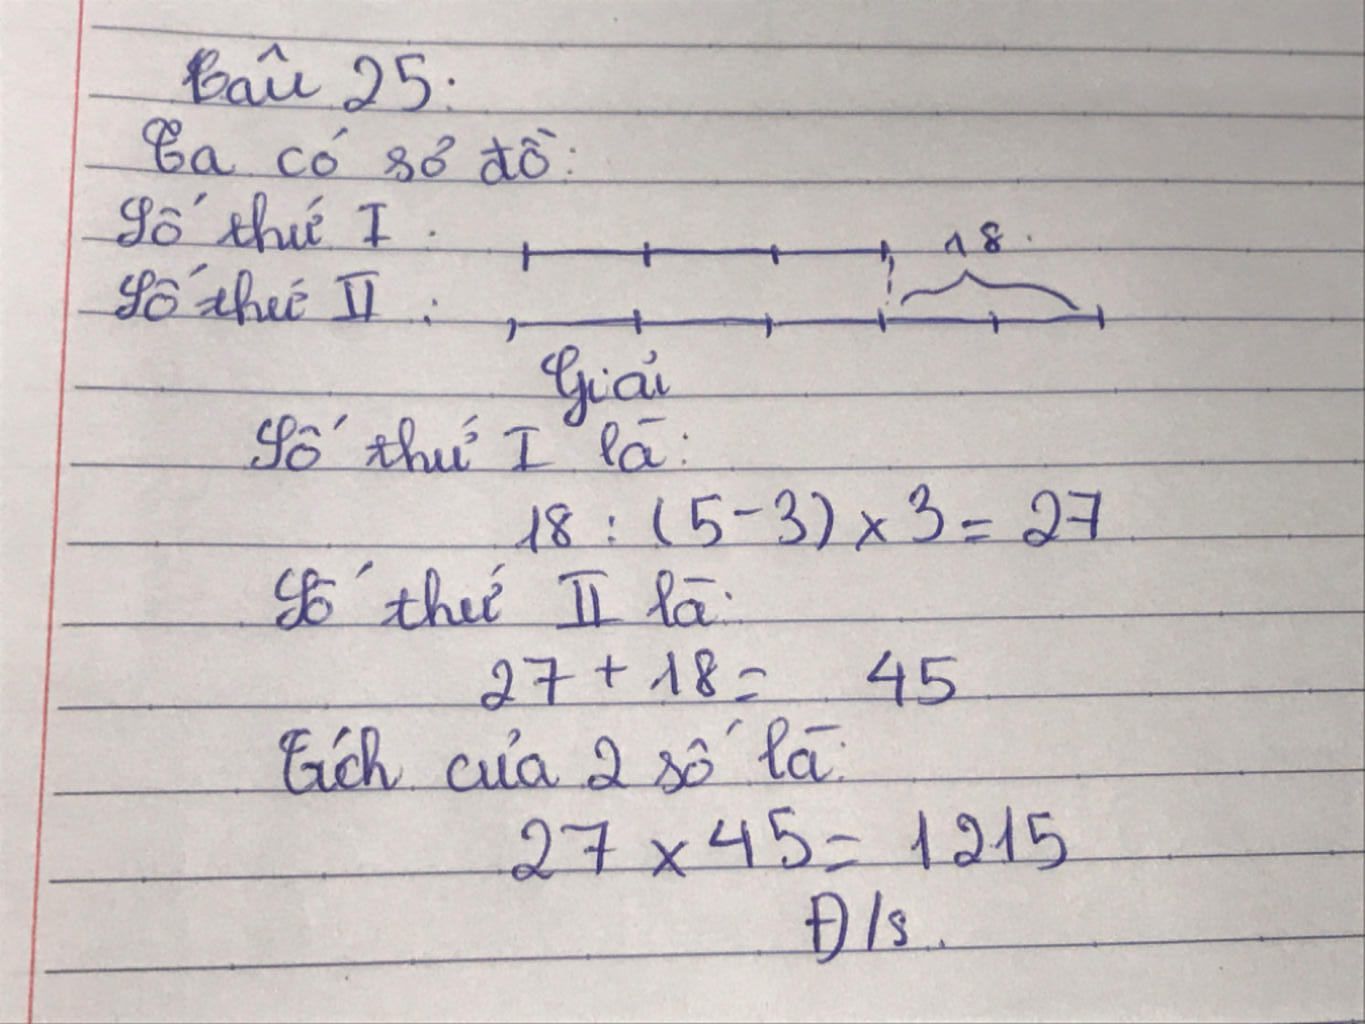 Câu 25:
Ta có sơ đồ:
Số thứ I :
18.
Số thứ II :
Giải
Số thứ I là:
18 : (5-3) x 3 = 27
Số thứ II là:
27 + 18 = 45
Tích của 2 số là:
27 x 45 = 1215
Đ/s.